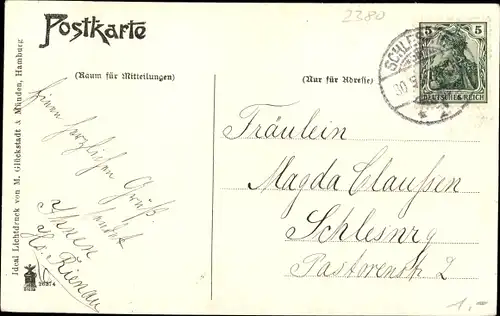 2380
Postkarte
(Raum für Mitteilungen)
(Nur für Adresse)
5 5
DEUTSCHES REICH
SCHLES
30.
* 2
Ideal Lichtdruck von M. Glückstadt & Münden, Hamburg
Einen herzlichen Gruß
sendet
Ihnen
Rienau
Fräulein
Magda Claußen
Schleswg
Pastorenstr 2
1.-